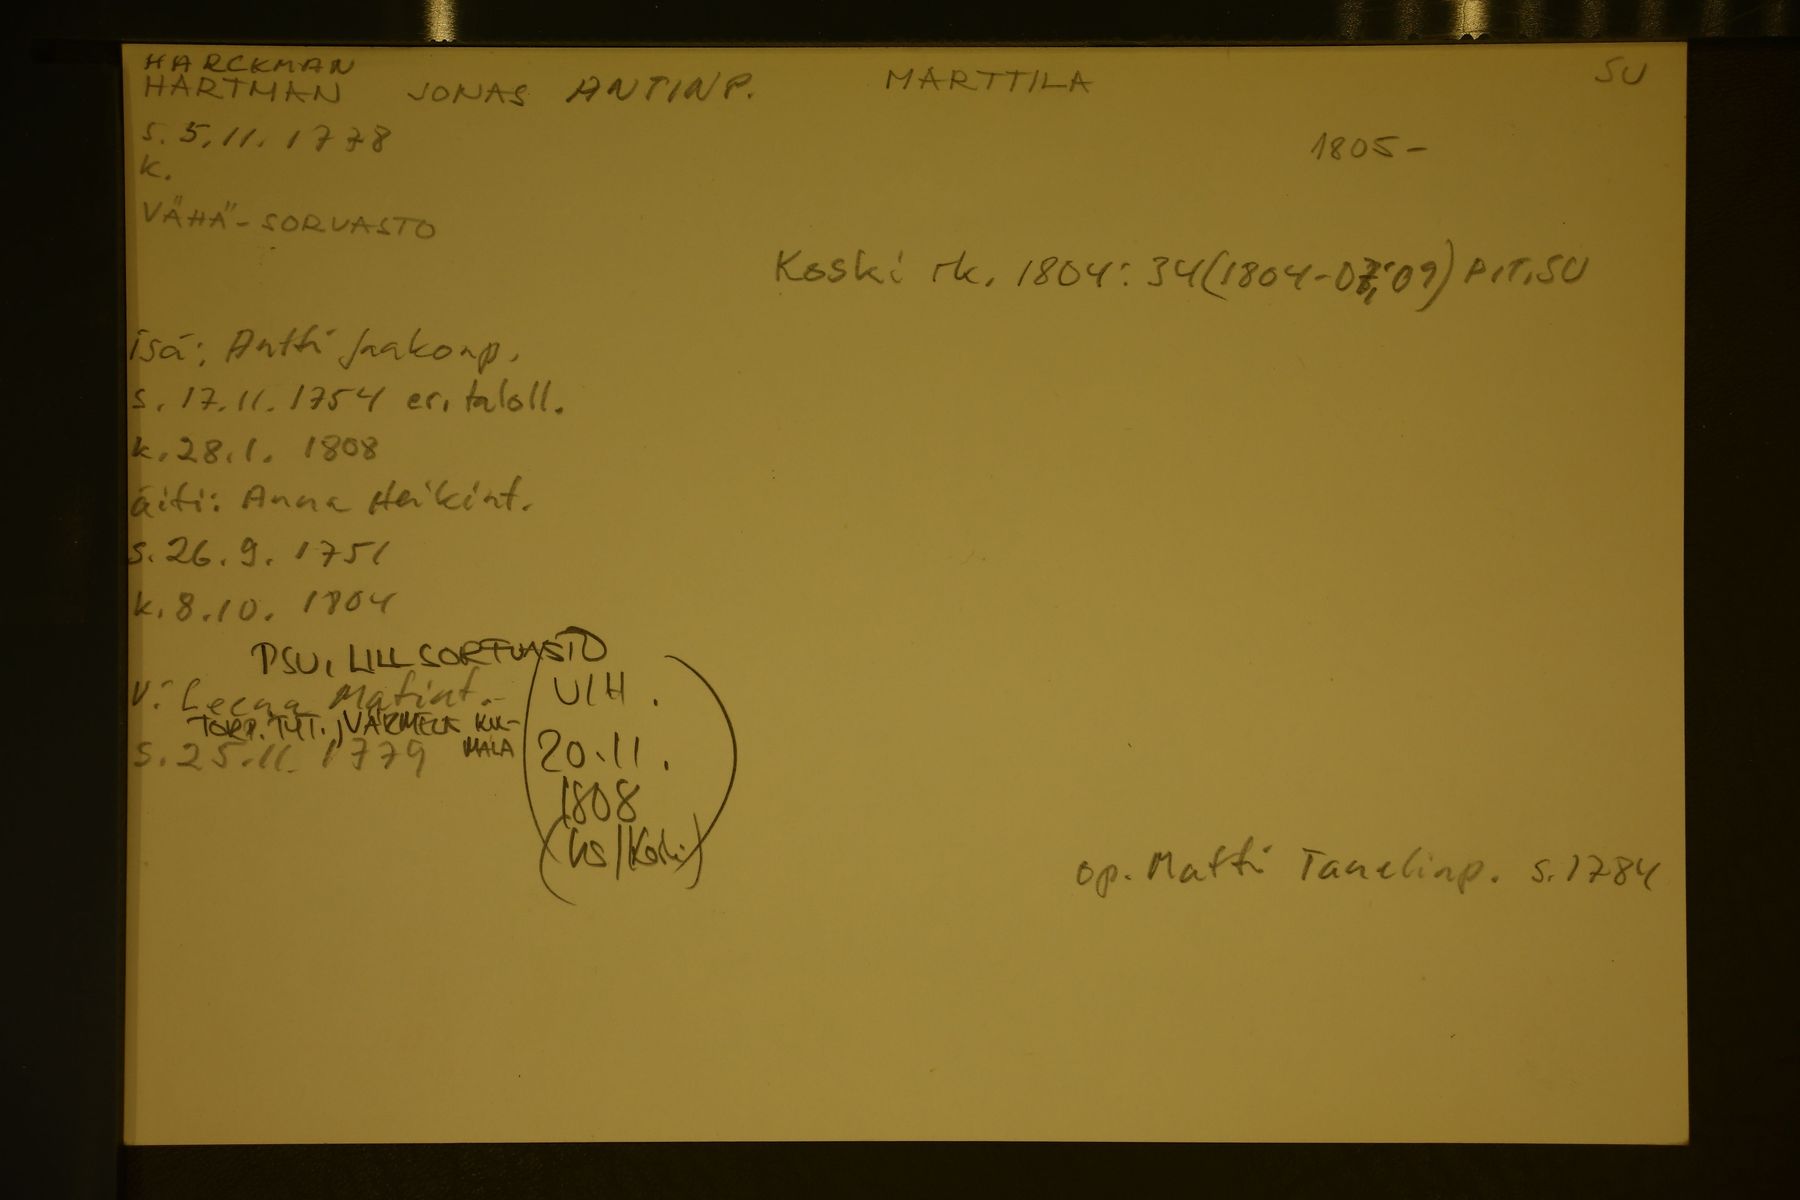 HARCKMAN
HARTMAN JONAS ANTINP. MARTTILA SU
s. 5.11. 1778
1805-
k.
VÄHÄ-SORVASTO
Koski rk. 1804: 34 (1804-07, 09) P.IT.SU
isä: Antti Jaakonp.
s. 17.11. 1754 er. taloll.
k. 28.1. 1808
äiti: Anna Heikint.
s. 26.9. 1751
k. 8.10. 1804
PSU, LILL SORFVASTO
V: Leena Matint.
TORP. TYT. JVÄRMELÄ KUL-
MALA
s. 25.11. 1779
(VIH.
20.11.
1808
(ks/Koski)
op. Matti Tanelinp. s. 1784